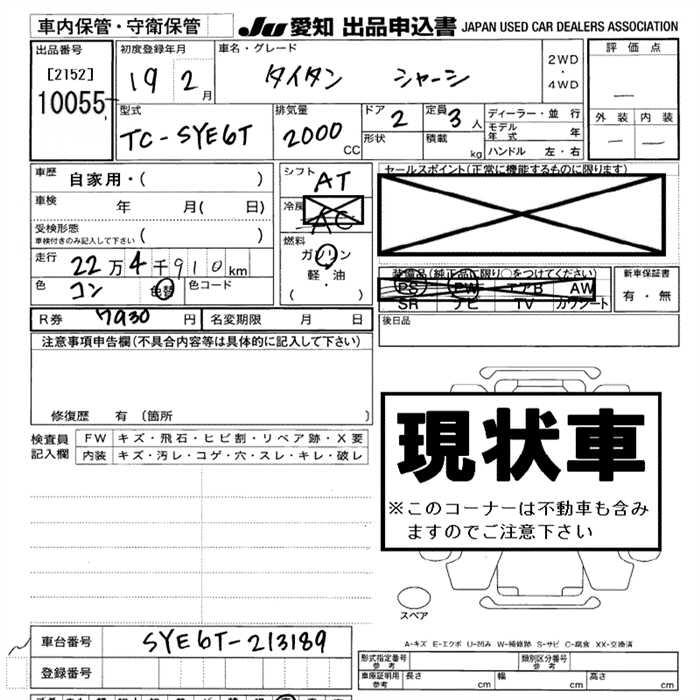 車内保管・守衛保管 JU 愛知 出品申込書 JAPAN USED CAR DEALERS ASSOCIATION
出品番号 初度登録年月 車名・グレード 評価点
[2152] 19 2月 タイタン シャーシ 2WD・4WD —
10055
型式 排気量 ドア 定員 ディーラー・並行 外装 内装
TC-SYE6T 2000CC 2 3人 モデル年式 年 — —
形状 積載 kg ハンドル 左・右
車歴 自家用・( ) シフト AT セールスポイント(正常に機能するものに限ります)
車検 年 月( 日) 冷房 AC
受検形態 ( )
車検付きのみ記入して下さい
燃料
走行 22万4千910km ガソリン
軽・油
( )
装備品(純正品に限り○をつけてください) 新車保証書
色 コン 色替 色コード PS PW エアB AW 有・無
SR ナビ TV カワシート
R券 7930円 名変期限 月 日 後日品
注意事項申告欄(不具合内容等は具体的に記入して下さい)
修復歴 有(箇所 )
現状車
※このコーナーは不動車も含み
ますのでご注意下さい
検査員 FW キズ・飛石・ヒビ割・リペア跡・X要
記入欄 内装 キズ・汚レ・コゲ・穴・スレ・キレ・破レ
スペア
A-キズ E-エクボ U-凹み W-補修跡 S-サビ C-腐食 XX-交換済
車台番号 SYE6T-213189
型式指定番号 参考 類別区分番号 参考
登録番号
車庫証明用 参考 長さ cm 幅 cm 高さ cm